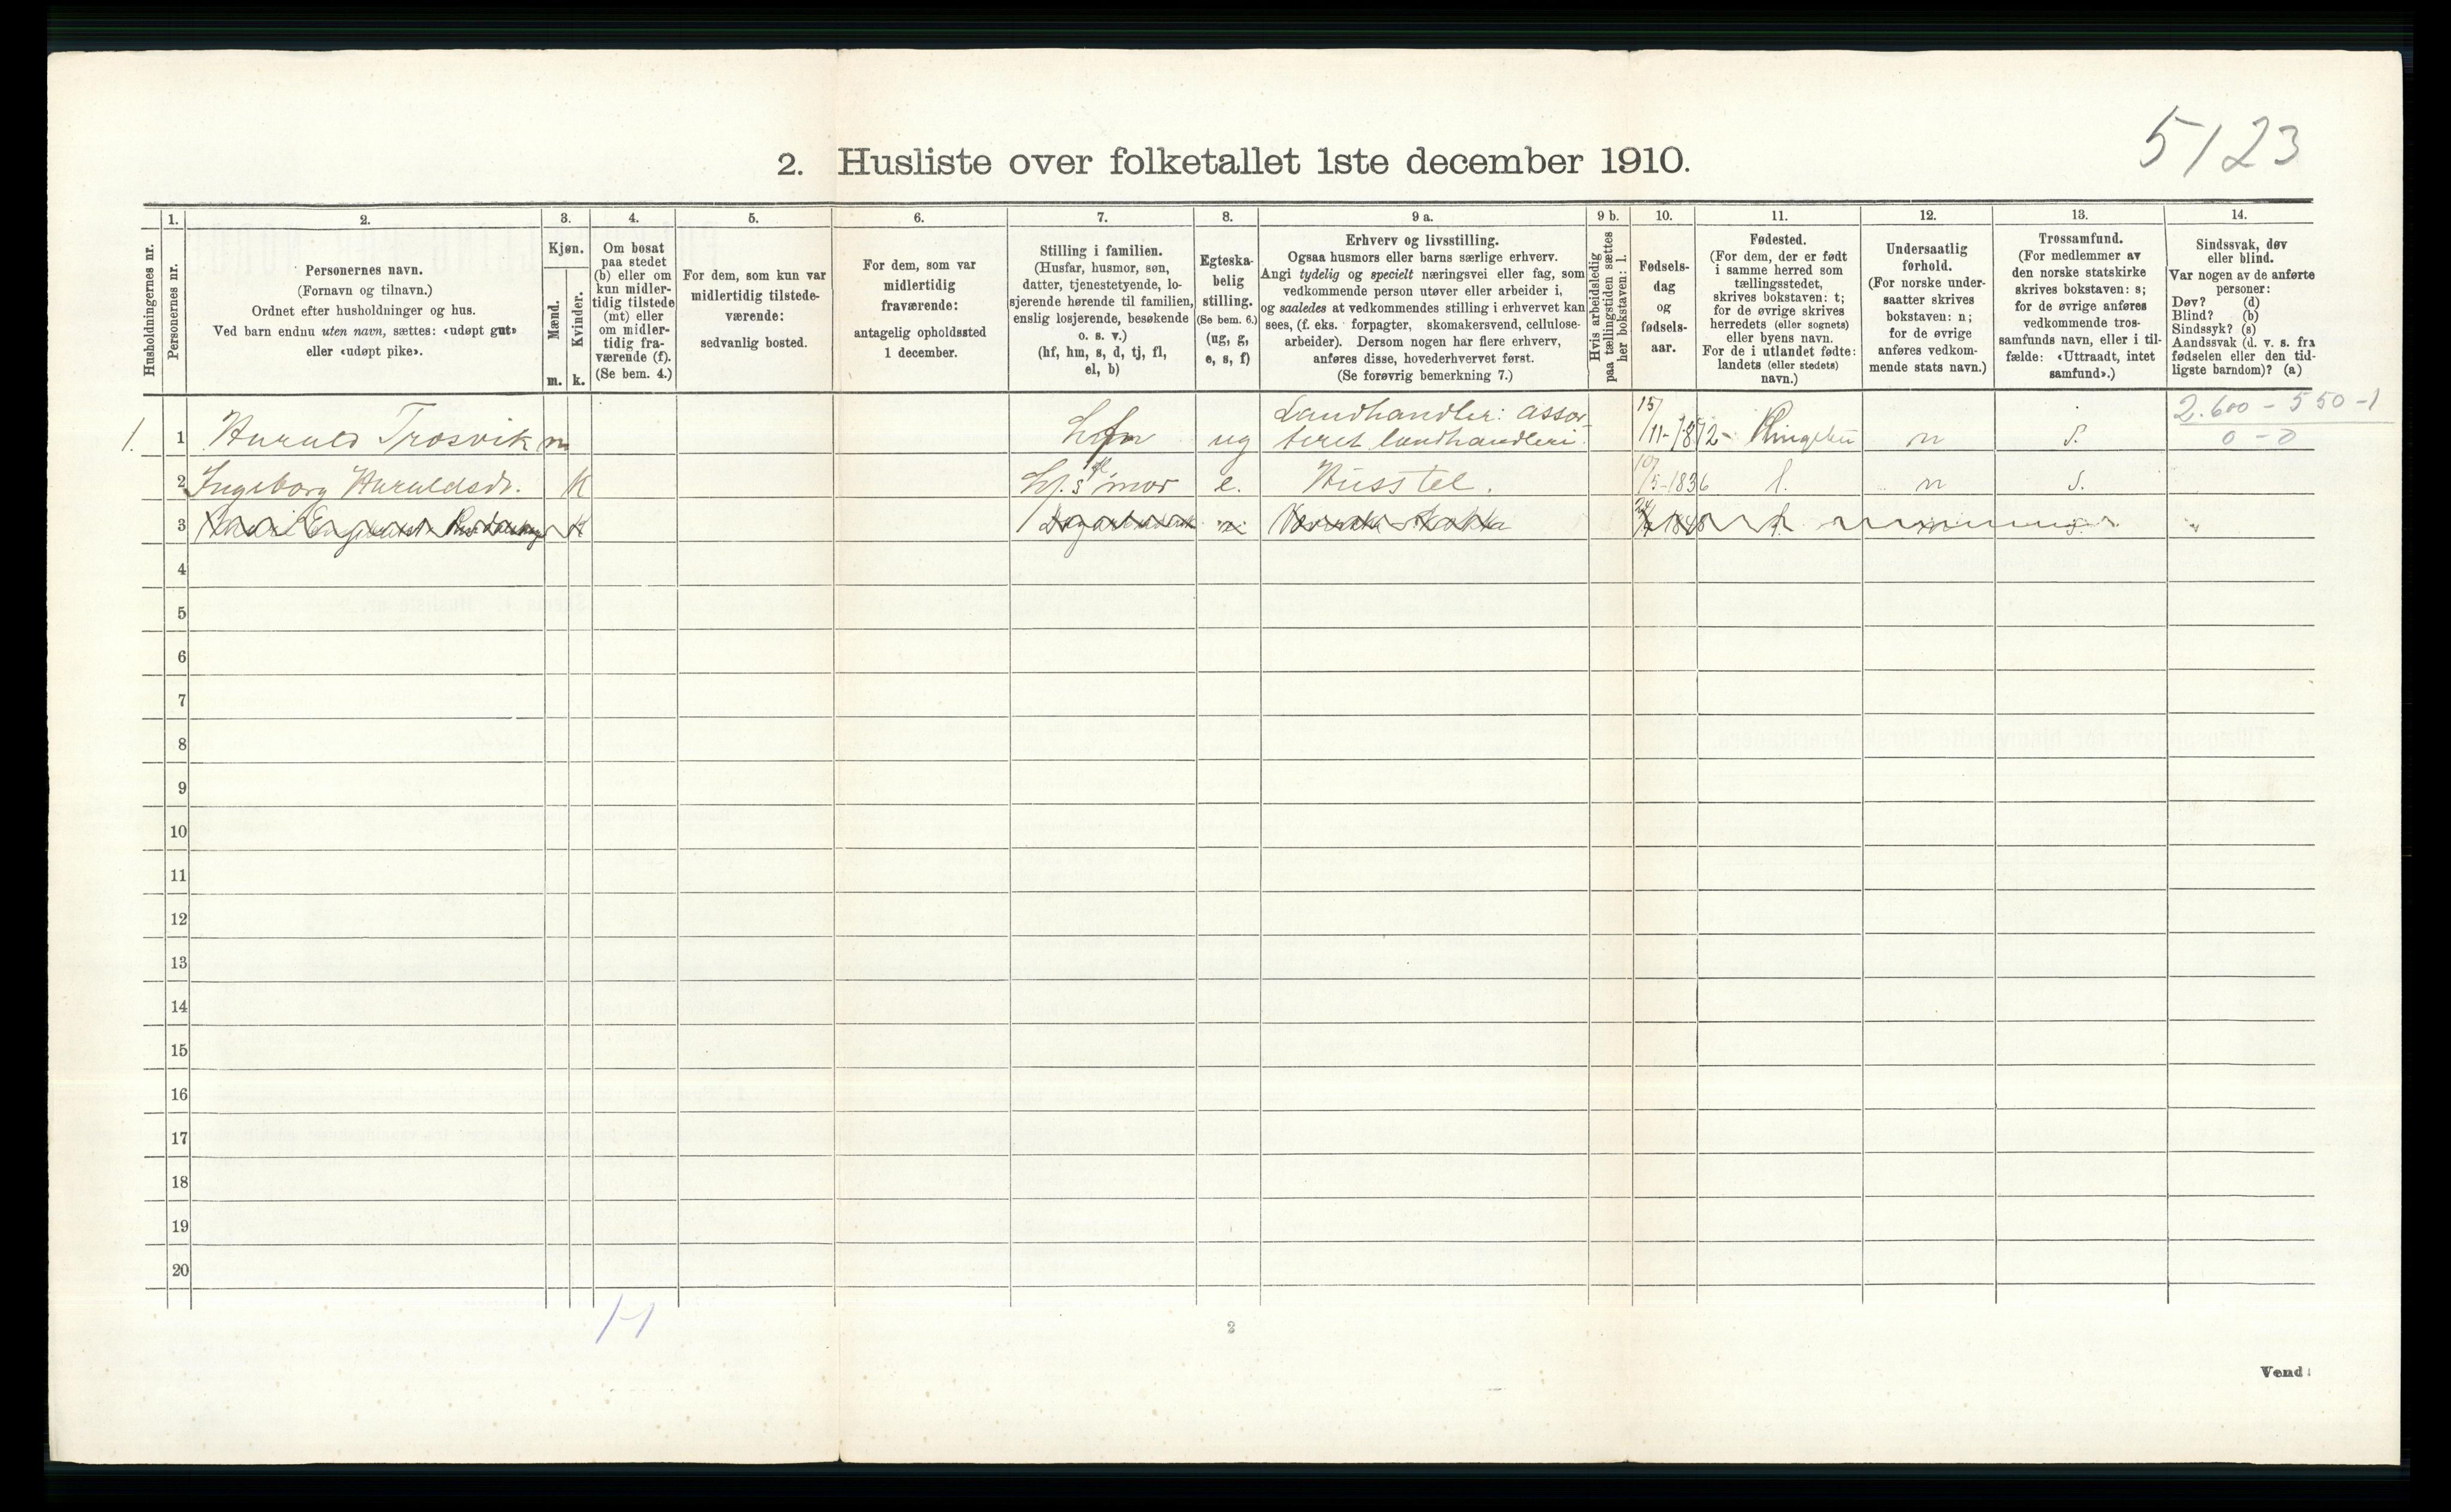 5123
2. Husliste over folketallet 1ste december 1910.
Husholdningernes nr.
1.
Personernes nr.
2.
Personernes navn.
(Fornavn og tilnavn.)
Ordnet efter husholdninger og hus.
Ved barn endnu uten navn, sættes: «udøpt gut»
eller «udøpt pike».
3.
Kjøn.
Mænd.
m.
Kvinder.
k.
4.
Om bosat
paa stedet
(b) eller om
kun midler-
tidig tilstede
(mt) eller
om midler-
tidig fra-
værende (f).
(Se bem. 4.)
5.
For dem, som kun var
midlertidig tilstede-
værende:
sedvanlig bosted.
6.
For dem, som var
midlertidig
fraværende:
antagelig opholdssted
1 december.
7.
Stilling i familien.
(Husfar, husmor, søn,
datter, tjenestetyende, lo-
sjerende hørende til familien,
enslig losjerende, besøkende
o. s. v.)
(hf, hm, s, d, tj, fl,
el, b)
8.
Egteska-
belig
stilling.
(Se bem. 6.)
(ug, g,
e, s, f)
9 a.
Erhverv og livsstilling.
Ogsaa husmors eller barns særlige erhverv.
Angi tydelig og specielt næringsvei eller fag, som
vedkommende person utøver eller arbeider i,
og saaledes at vedkommendes stilling i erhvervet kan
sees, (f. eks. forpagter, skomakersvend, cellulose-
arbeider). Dersom nogen har flere erhverv,
anføres disse, hovederhvervet først.
(Se forøvrig bemerkning 7.)
9 b.
Hvis arbeidsledig
paa tællingstiden sættes
her bokstaven: l.
10.
Fødsels-
dag
og
fødsels-
aar.
11.
Fødested.
(For dem, der er født
i samme herred som
tællingsstedet,
skrives bokstaven: t;
for de øvrige skrives
herredets (eller sognets)
eller byens navn.
For de i utlandet fødte:
landets (eller stedets)
navn.)
12.
Undersaatlig
forhold.
(For norske under-
saatter skrives
bokstaven: n;
for de øvrige
anføres vedkom-
mende stats navn.)
13.
Trossamfund.
(For medlemmer av
den norske statskirke
skrives bokstaven: s;
for de øvrige anføres
vedkommende tros-
samfunds navn, eller i til-
fælde: «Uttraadt, intet
samfund».)
14.
Sindssvak, døv
eller blind.
Var nogen av de anførte
personer:
Døv? (d)
Blind? (b)
Sindssyk? (s)
Aandssvak (d. v. s. fra
fødselen eller den tid-
ligste barndom)? (a)
2.600 - 550 - 1
0 - 0
1. 1 Harald Trosvik m ug Landhandler: assor-
teret landhandleri. 15/11-1872 Ringebu n s.
2 Ingeborg Haraldsdr. K mor e. Husstel. 10/5-1836 t. n s.
3 K
4
5
6
7
8
9
10
11
12
13
14
15
16
17
18
19
20
1-1
2
Vend!